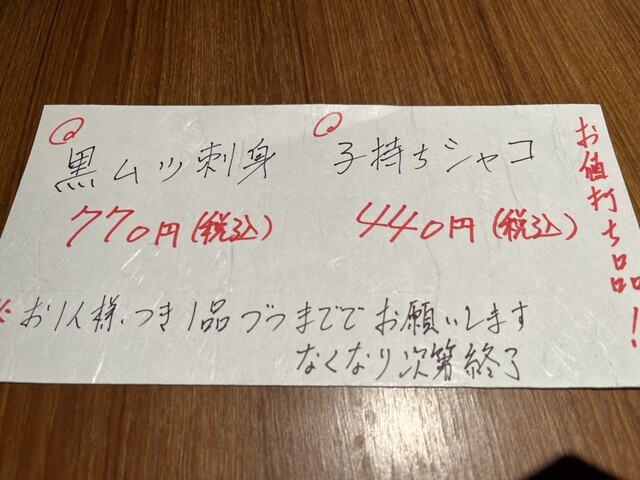 黒ムツ刺身
770円(税込)
子持ちシャコ
440円(税込)
お値打ち品!
※お1人様、つき1品づつまででお願いします
なくなり次第終了